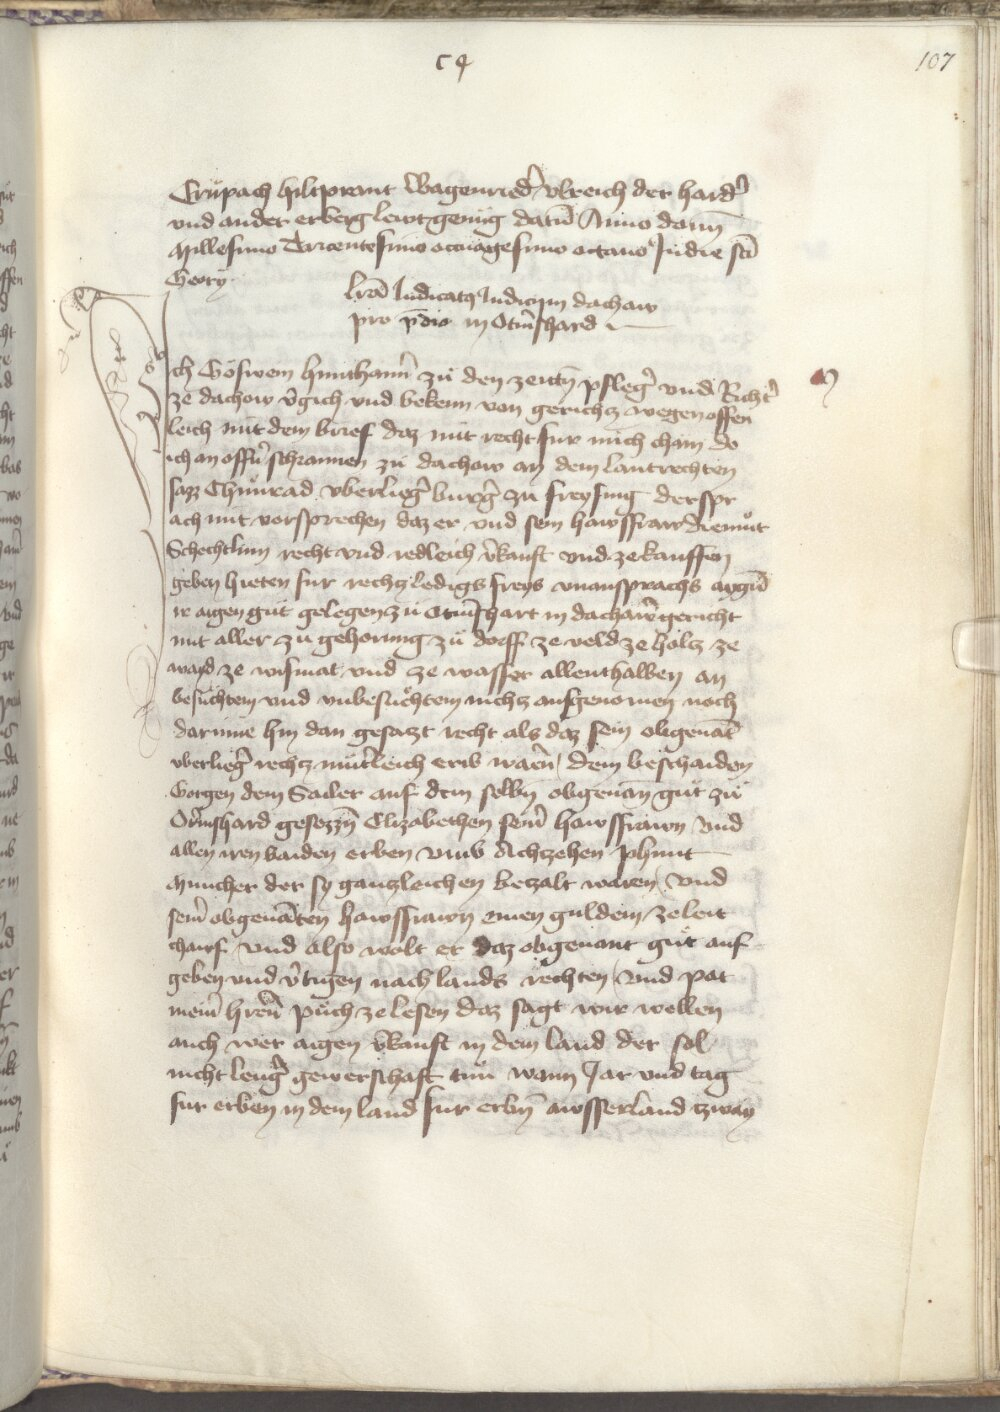 c4
107
Crüpach hiltprant Wagenried̄ vlreich der hard̄
vnd ander erberg lewt genüg datū Anno domī
Millesimo Tricentesimo octuagesimo octauo Jn die scī
Georÿ
Lrā Judicatꝰ Judicum dachaw
pro p̄dio in Otm̄shard
Jch Göswein hunthaım̄ zü den zeitn̄ pfleḡ vnd Richt̄
ze dachaw v̄gich vnd bekenn von gerichtz wegen offen
leich mit dem brief daz mit recht fur mich cham do
ich an offn̄ schrannen zü dachaw an dem lantrechten
sazz Chünrad vberlieḡ burḡ zu freysing der spr
ach mit vorsprechen daz er vnd sein hawsfraw diemüt
Schechtlinn recht vnd redleich v̄kauft vnd ze kauffen
geben hieten fur rechtz ledigs freys vnansprachs aygū
ir aigen güt gelegen zu Otm̄shart in dachaw̄ gericht
mit aller zu gehorung zü dorff ze veld ze holtz ze
waid ze wismat vnd ze wasser allenthalben an
besüchtem vnd vnbesüchtem nichtz ausgenomen noch
darinne hin dan gesatzt recht als daz sein obgenāt
vberlieḡ rechtz mūt̄leich erib waren dem beschaiden
Gorgen dem Sailer auf dem selbn̄ obgenan̄ güt zü
Otm̄shard gesezzn̄ Elizabethen sein̄ hawsfrawn vnd
allen iren baiden erben vmb Achtzehen pfunt
Muncher der sy gantzleichen betzalt waren vnd
sein̄ obgenāten hawsfrawn einen guldein ze leit
chauf vnd also wolt er daz obgenant güt auf
geben vnd v̄tigen nach lands rechten vnd pat
mein̄ hren̄ püch ze lesen daz sagt wir wellen
auch wer aigen v̄kauft in dem land der sol
nicht lenḡ gewerschaft tün wann Jar vnd tag
fur erben in dem land fur erbn̄ awsserland zway